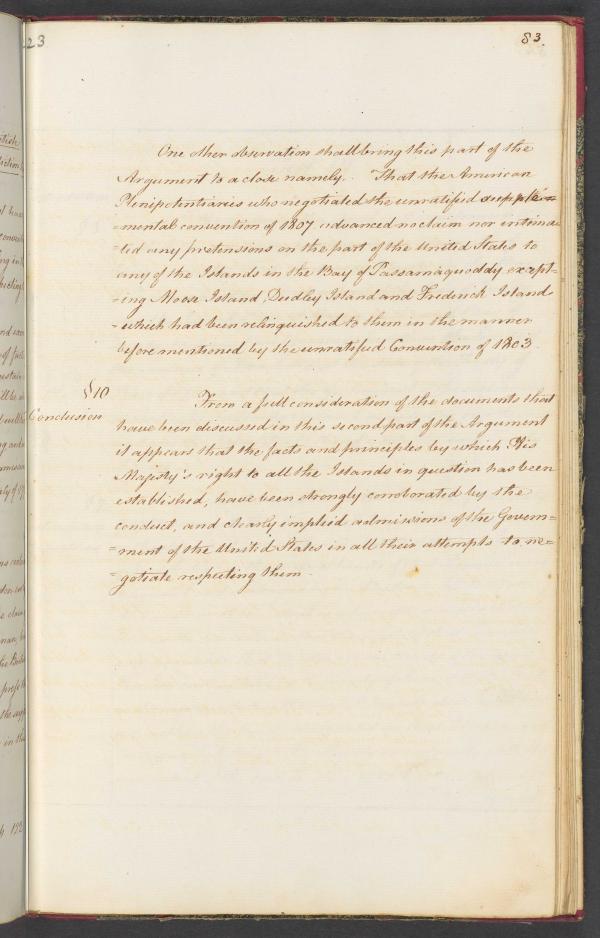 23
83.
One other observation shall bring this part of the
Argument to a close namely. That the American
Plenipotentiaries who negotiated the unratified supple=
=mental convention of 1807 advanced no claim nor intima=
=ted any pretensions on the part of the United States to
any of the Islands in the Bay of Passamaquoddy except=
=ing Moose Island, Dudley Island and Frederick Island
which had been relinquished to them in the manner
before mentioned by the unratified Convention of 1803.
§10
Conclusion
From a full consideration of the documents that
have been discussed in this second part of the Argument
it appears that the facts and principles by which His
Majesty's right to all the Islands in question has been
established, have been strongly corroborated by the
conduct, and clearly implied admissions of the Govern=
=ment of the United States in all their attempts to ne=
=gotiate respecting them.